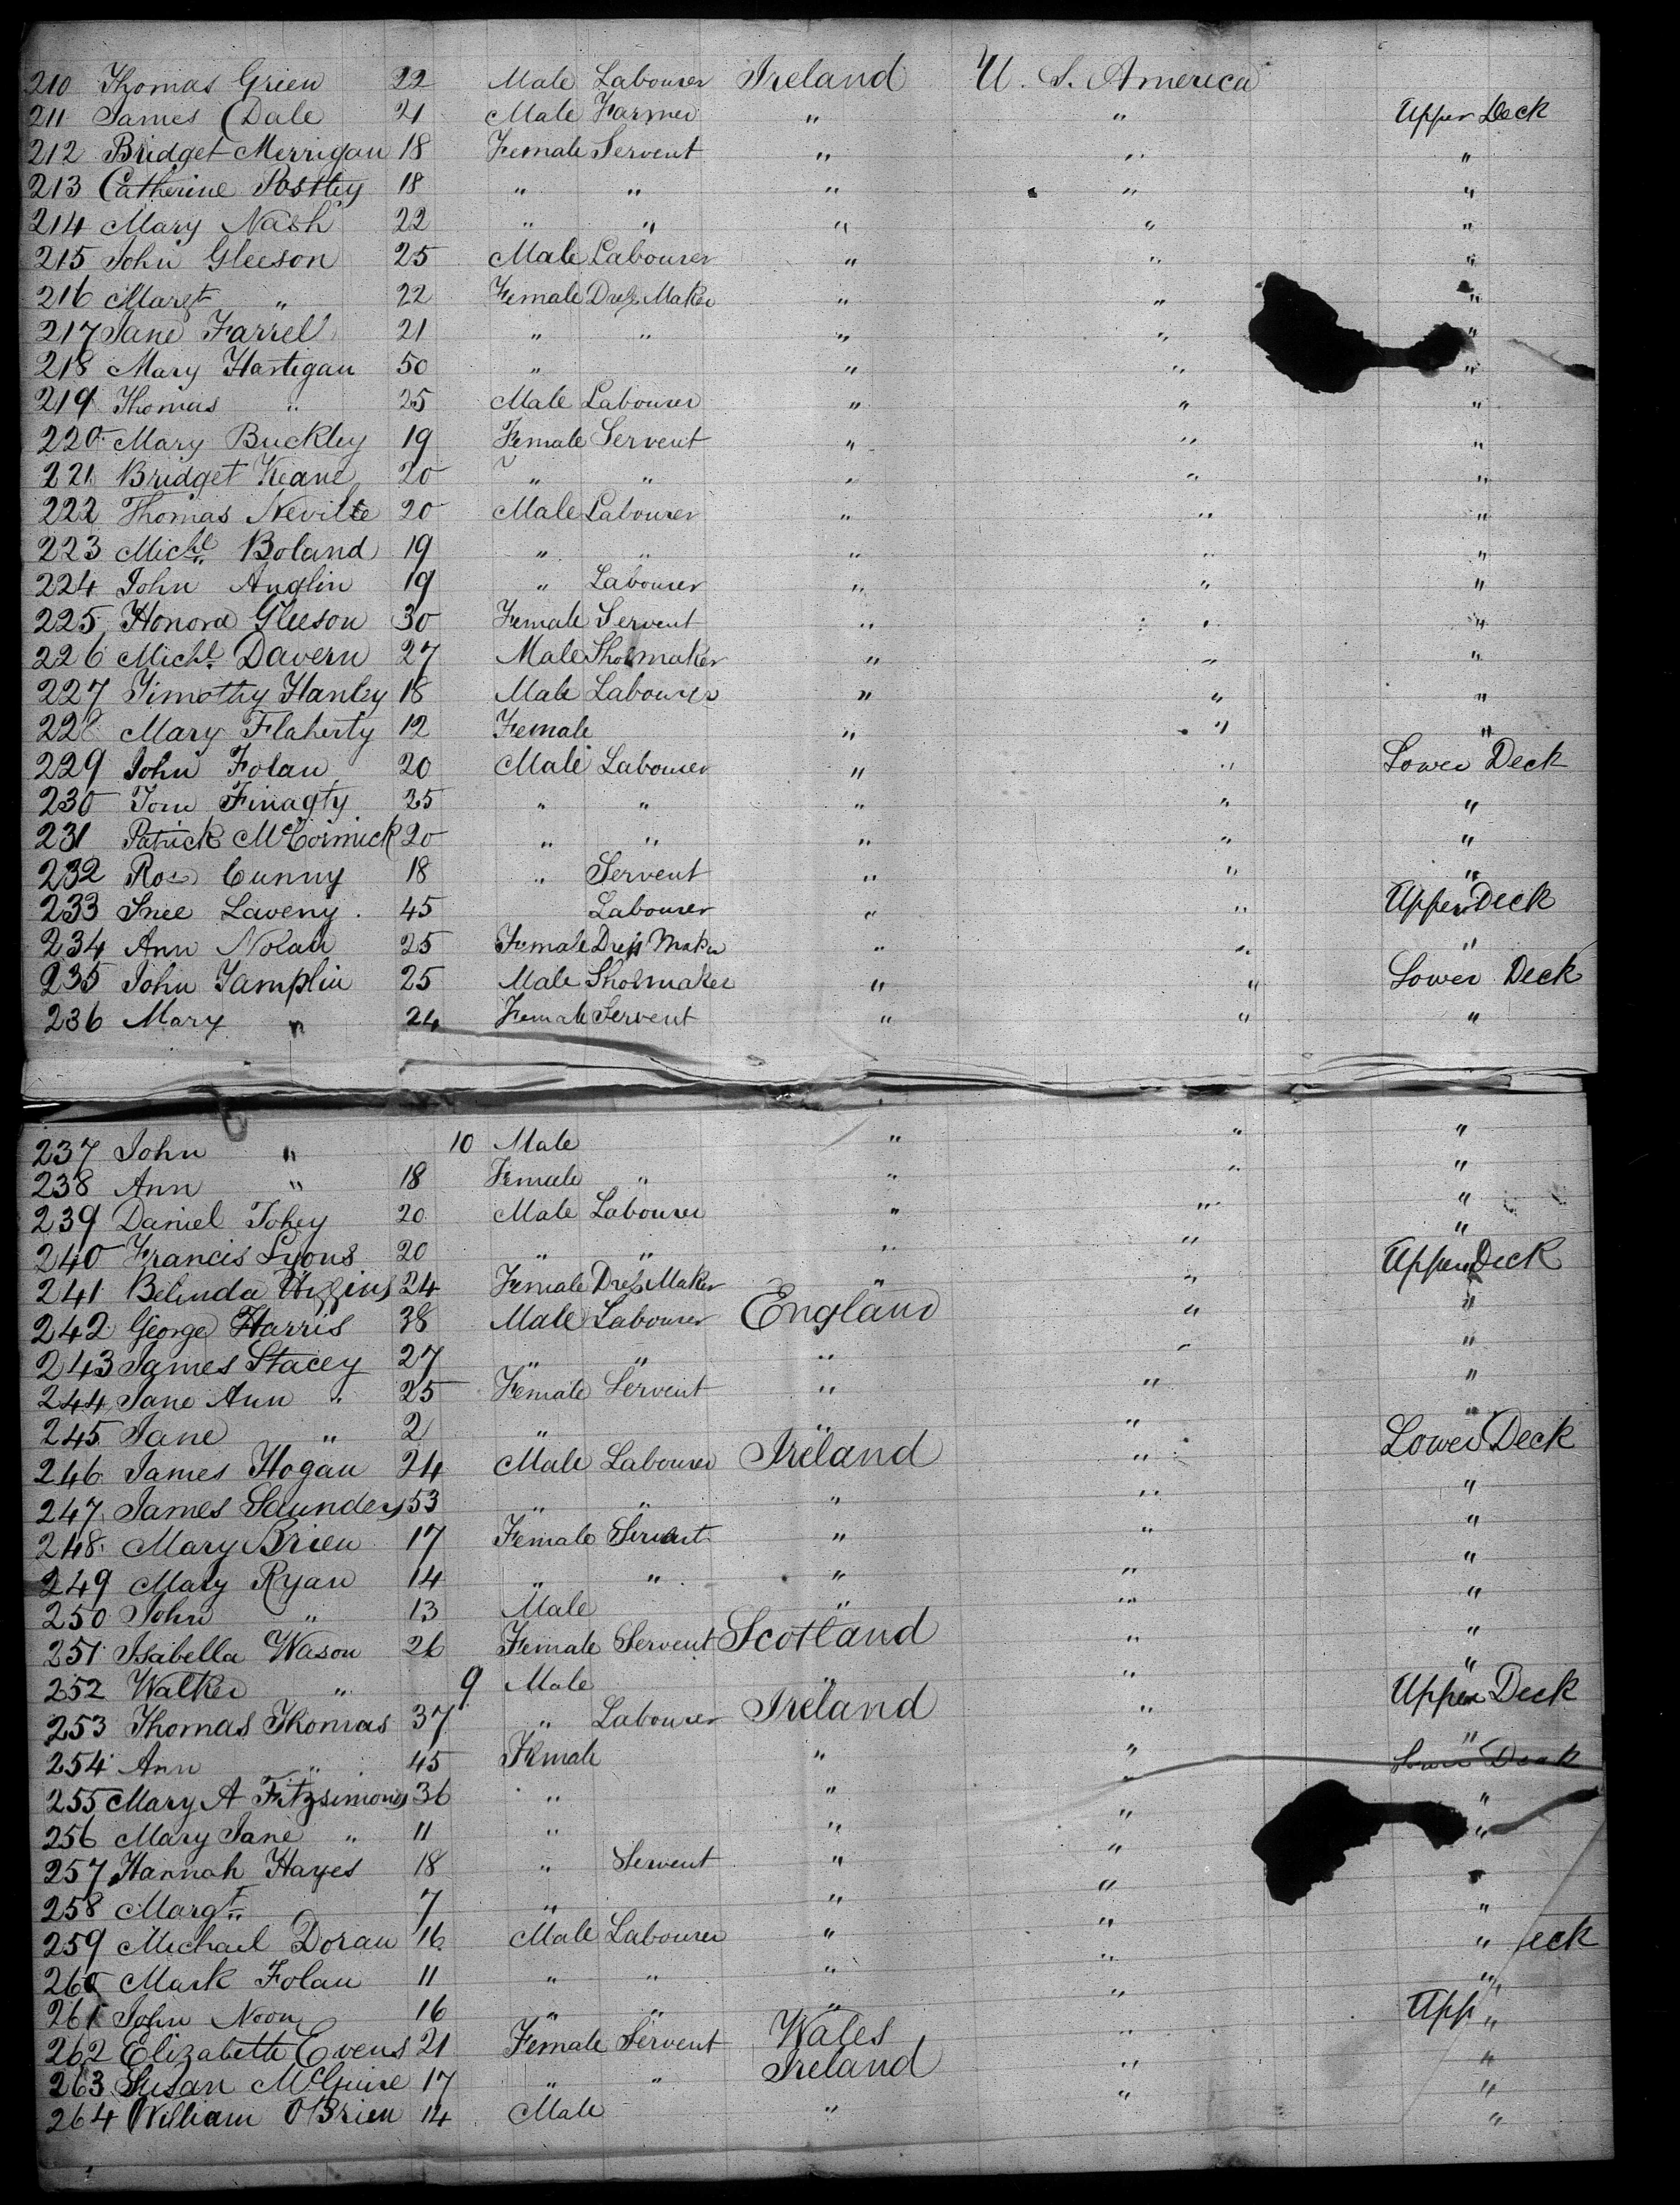 210 Thomas Grien 22 Male Labourer Ireland U. S. America
211 James Dale 21 Male Farmer " " Upper Deck
212 Bridget Merrigan 18 Female Servent " " "
213 Catherine Postley 18 " " " " "
214 Mary Nash 22 " " " " "
215 John Gleeson 25 Male Labourer " " "
216 Margt " 22 Female Dress Maker " " "
217 Jane Farrell 21 " " " " "
218 Mary Hartigan 50 " " " "
219 Thomas " 25 Male Labourer " " "
220 Mary Buckley 19 Female Servent " " "
221 Bridget Keane 20 " " " " "
222 Thomas Neville 20 Male Labourer " " "
223 Michl Boland 19 " " " " "
224 John Anglin 19 " Labourer " " "
225 Honora Gleeson 30 Female Servent " " "
226 Michl Davern 27 Male Shoemaker " " "
227 Timothy Hanley 18 Male Labourer " " "
228 Mary Flaherty 12 Female " " "
229 John Folan 20 Male Labourer " " Lower Deck
230 Tom Finagty 25 " " " " "
231 Patrick McCormick 20 " " " " "
232 Cunny 18 " Servent " " "
233 Laveny 45 Labourer " " Upper Deck
234 Ann Nolan 25 Female Dress Maker " " "
235 John Tamplin 25 Male Shoemaker " " Lower Deck
236 Mary " 24 Female Servent " " "
237 John " 10 Male " " "
238 Ann " 18 Female " " " "
239 Daniel Tohey 20 Male Labourer " " "
240 Francis Lyons 20 " " " " "
241 Belinda Higgins 24 Female Dress Maker " " Upper Deck
242 George Harris 38 Male Labourer England " "
243 James Stacey 27 " " " " "
244 Jane Ann " 25 Female Servent " " "
245 Jane " 2 " " " "
246 James Hogan 24 Male Labourer Ireland " Lower Deck
247 James Saunders 53 " " " " "
248 Mary Brien 17 Female Servent " " "
249 Mary Ryan 14 " " " " "
250 John " 13 Male " " "
251 Isabella Wason 26 Female Servent Scotland " "
252 Walker " 9 Male " " "
253 Thomas Thomas 37 " Labourer Ireland " Upper Deck
254 Ann " 45 Female " " "
255 Mary A Fitzsimons 36 " " " Lower Deck
256 Mary Jane " 11 " " " "
257 Hannah Hayes 18 " Servent " " "
258 Margt " 7 " " " "
259 Michael Doran 16 Male Labourer " " " eck
260 Mark Folan 11 " " " " "
261 John Noon 16 " " " " Upp "
262 Elizabeth Evens 21 Female Servent Wales " "
263 Susan McGuire 17 " " Ireland " "
264 William OBrien 14 Male " " "